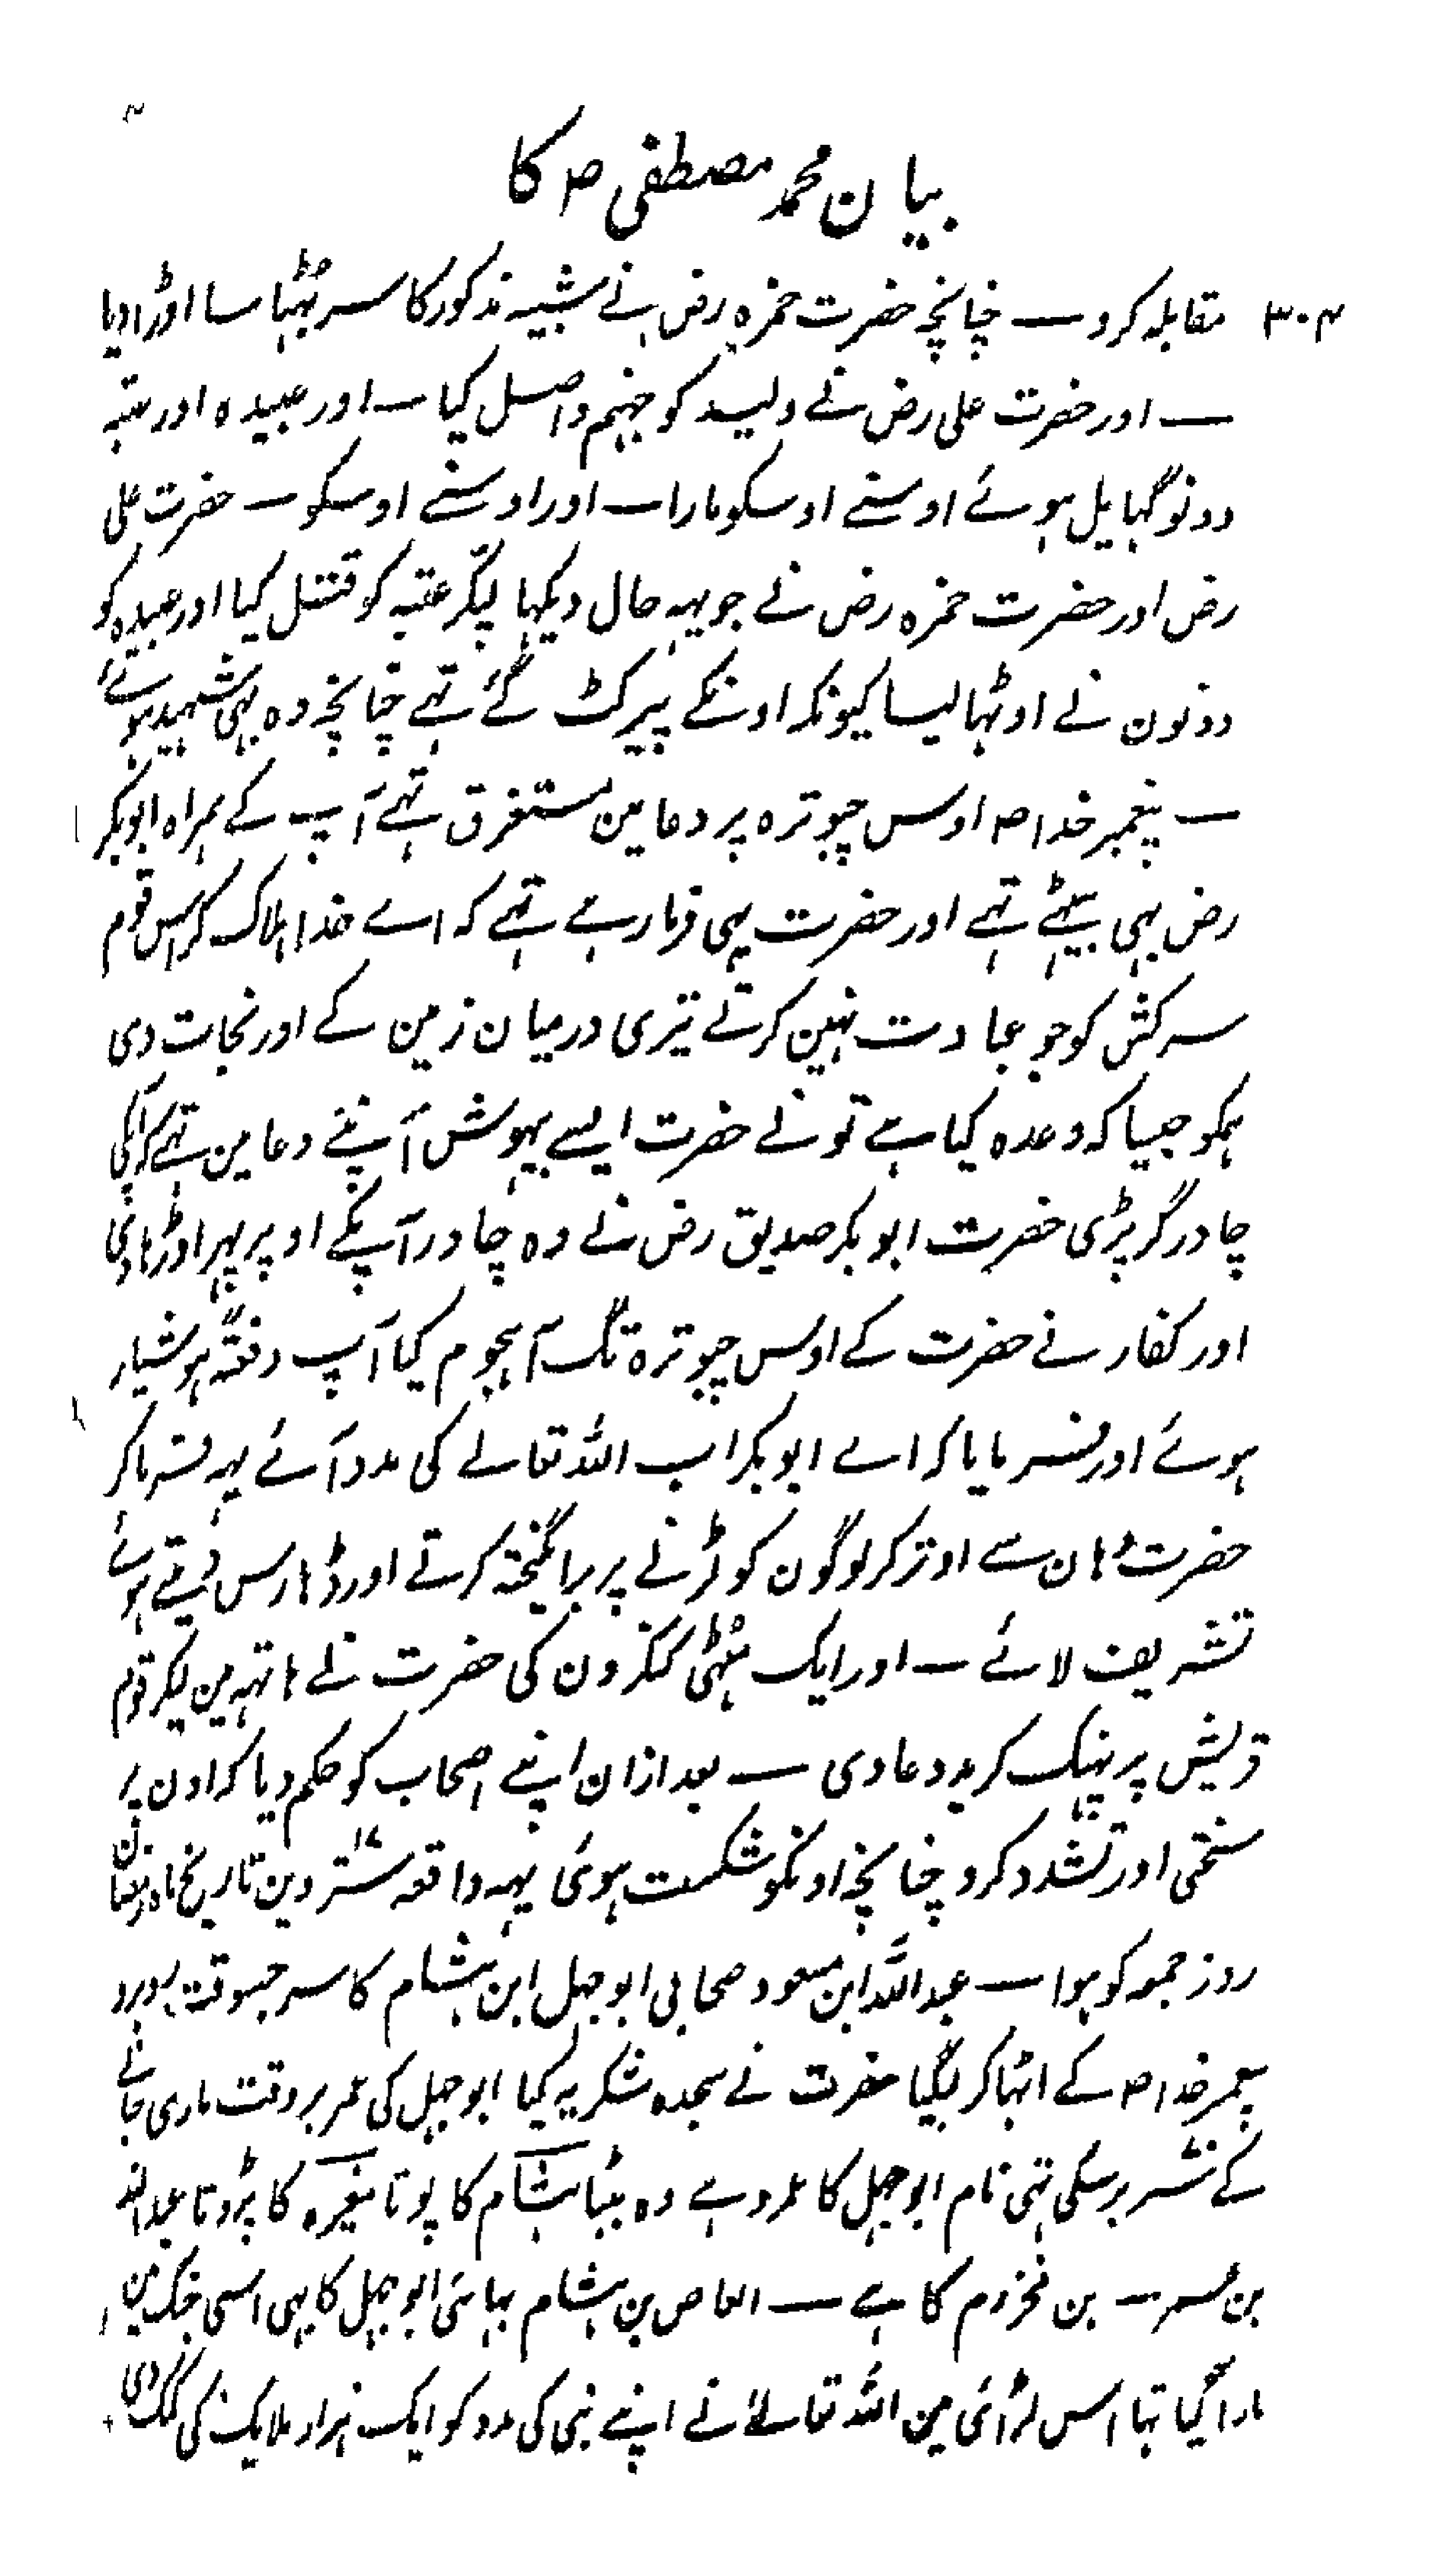 بیان محمد مصطفی ص کا
۳۰۴ مقابلہ کرو — چنانچہ حضرت حمزہ رض نے شیبہ مذکور کا سر بھٹہا سا اوڑا دیا
— اور حضرت علی رض نے ولید کو جہنم واصل کیا — اور عبیدہ اور عتبہ
دونو گہایل ہوئے اوسنے اوسکو مارا — اور اوسنے اوسکو — حضرت علی
رض اور حضرت حمزہ رض نے جو یہہ حال دیکہا لپکر عتبہ کو قتل کیا اور عبیدہ کو
دونون نے اوٹہا لیا کیونکہ اونکے پیر کٹ گئے تہے چنانچہ وہ بہی شہید ہوئے
— پیغمبر خدا ص اوس چبوترہ پر دعا مین مستغرق تہے آپ کے ہمراہ ابوبکر
رض بہی بیٹہے تہے اور حضرت یہی فرما رہے تہے کہ اے خدا ہلاک کر اس قوم
سرکش کو جو عبادت نہین کرتے تیری درمیان زمین کے اور نجات دی
ہمکو جیسا کہ وعدہ کیا ہے تو نے حضرت ایسے بیہوش آپنے دعا مین تہے کہ آپکی
چادر گر پڑی حضرت ابوبکر صدیق رض نے وہ چادر آپکے اوپر پہر اوڑہا دی
اور کفار نے حضرت کے اوس چبوترہ تک آ ہجوم کیا آپ دفعۃً ہوشیار
ہوئے اور فرمایا کہ اے ابوبکر اب اللہ تعالے کی مدد آئے یہہ فرماکر
حضرت وہان سے اوتر کر لوگون کو لڑنے پر برانگیختہ کرتے اور ڈہارس دیتے ہوئے
تشریف لائے — اور ایک مٹہی کنکرون کی حضرت نے ہاتہہ مین لیکر قوم
قریش پر پہینک کر بد دعا دی — بعد ازان اپنے اصحاب کو حکم دیا کہ اون پر
سختی اور تشدد کرو چنانچہ اونکو شکست ہوئی یہہ واقعہ سترہوین ۱۷ تاریخ ماہ رمضان
روز جمعہ کو ہوا — عبد اللہ ابن مسعود صحابی ابو جہل ابن ہشام کا سر جسوقت روبرو
پیغمبر خدا ص کے اٹہا کر لیگیا حضرت نے سجدہ شکریہ کیا ابو جہل کی عمر بروقت ماری جانے
کے ستر برسکی تہی نام ابو جہل کا عمرو ہے وہ بیٹا ہشام کا پوتا مغیرہ کا پڑوتا عبد اللہ
بن عمر — بن مخزوم کا ہے — العاص بن ہشام بہائی ابو جہل کا بہی اسی جنگ مین
مارا گیا تہا اس لڑائی مین اللہ تعالےٰ نے اپنے نبی کی مدد کو ایک ہزار ملایک کی کمک دی